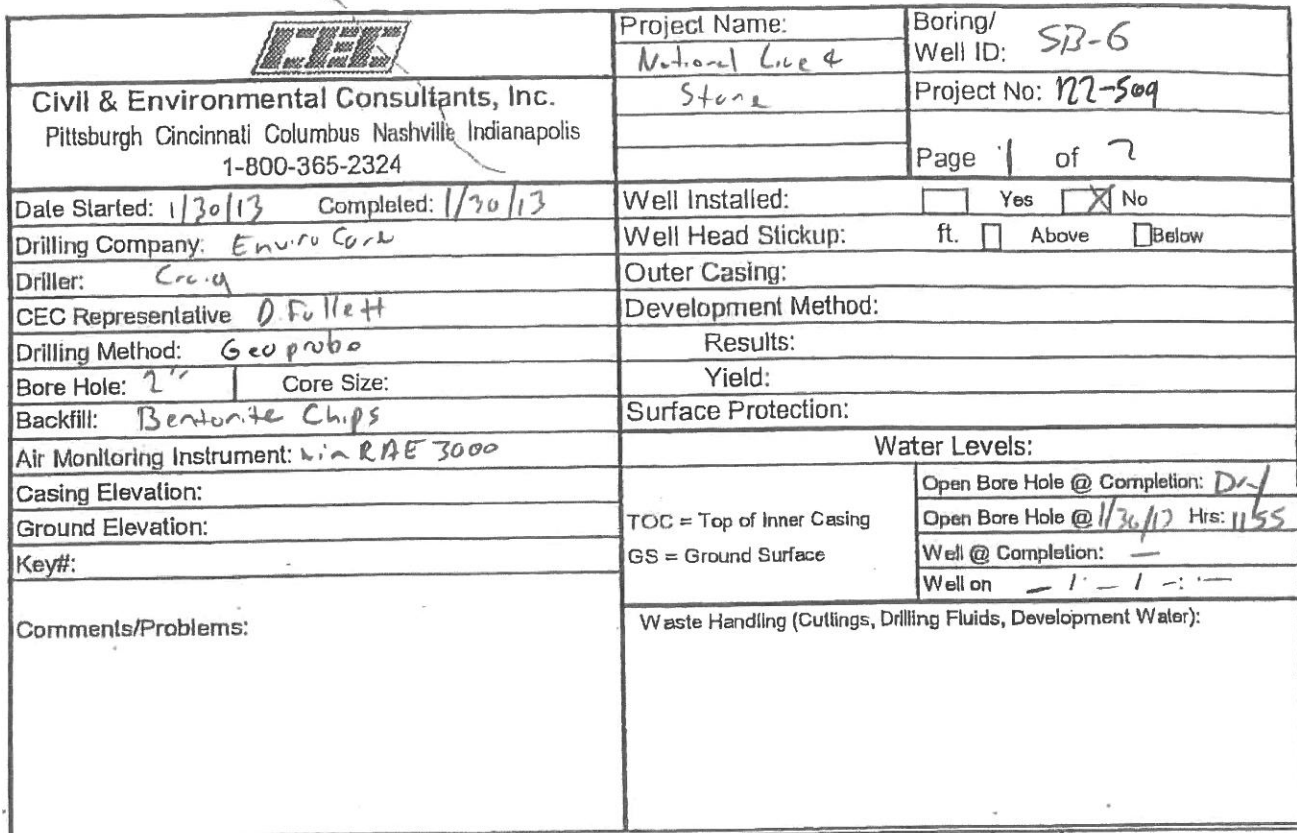 CEC
Civil & Environmental Consultants, Inc.
Pittsburgh Cincinnati Columbus Nashville Indianapolis
1-800-365-2324
Project Name:
National Lime &
Stone
Boring/
Well ID: SB-6
Project No: 122-509
Page 1 of 2
Date Started: 1/30/13 Completed: 1/30/13
Drilling Company: Enviro Core
Driller: Craig
CEC Representative D. Follett
Drilling Method: Geoprobe
Bore Hole: 2" Core Size:
Backfill: Bentonite Chips
Air Monitoring Instrument: MiniRAE 3000
Casing Elevation:
Ground Elevation:
Key#:
Comments/Problems:
Well Installed: Yes X No
Well Head Stickup: ft. Above Below
Outer Casing:
Development Method:
Results:
Yield:
Surface Protection:
Water Levels:
TOC = Top of Inner Casing
GS = Ground Surface
Open Bore Hole @ Completion: Dry
Open Bore Hole @ 1/30/13 Hrs: 1155
Well @ Completion: —
Well on — / — / — : —
Waste Handling (Cuttings, Drilling Fluids, Development Water):